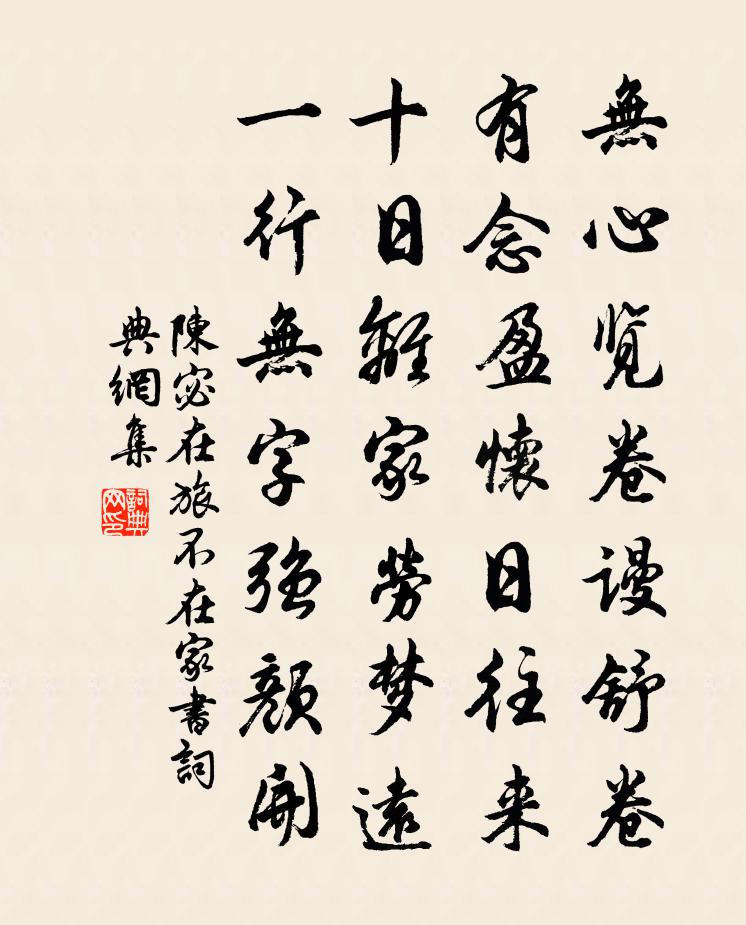 無心覽卷謾舒卷
有念盈懷日往来
十日離家勞梦遠
一行無字强顏開
陳宓在旅不在家書詞
典網集
詞典
网印